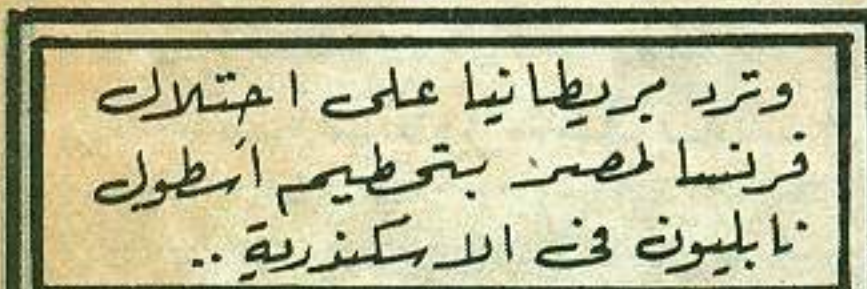 وترد بريطانيا على احتلال
فرنسا لمصر بتحطيم أسطول
نابليون فى الاسكندرية ..